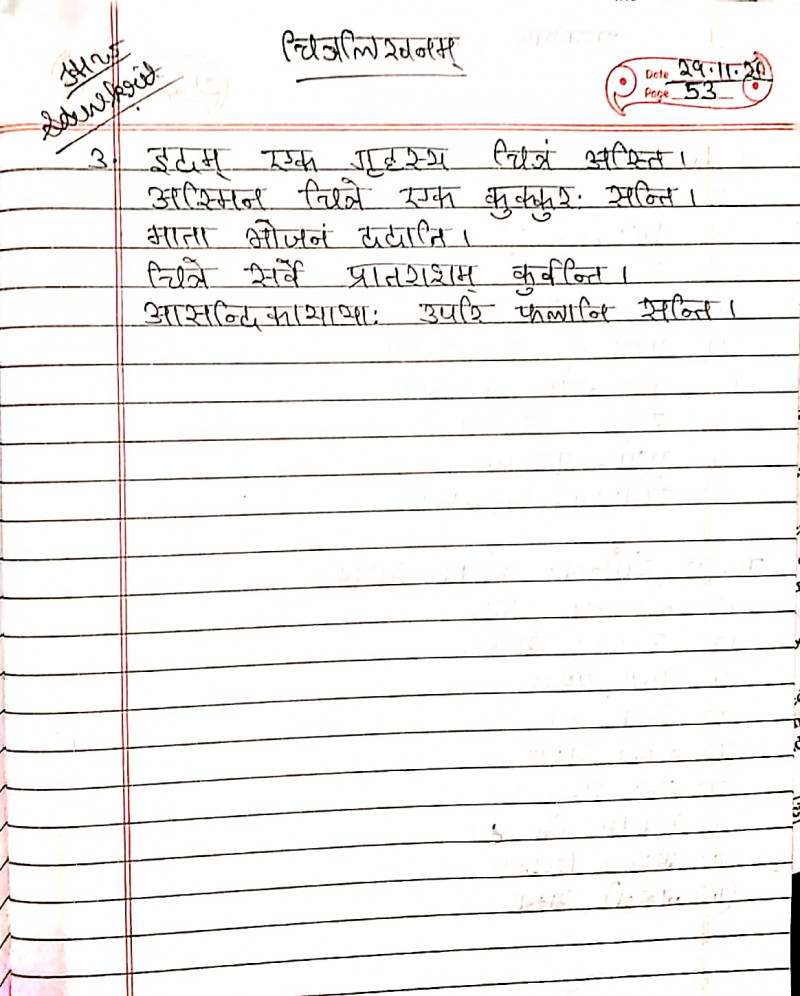 चित्रलिखनम्
Sanskrit
Date 29.11.20
Page 53
3. इदम् एक गृहस्य चित्रं अस्ति।
अस्मिन चित्रे एक कुक्कुरः सन्ति।
माता भोजनं ददाति।
चित्रे सर्वे प्रातराशम् कुर्वन्ति।
आसन्दिकायायाः उपरि फलानि सन्ति।